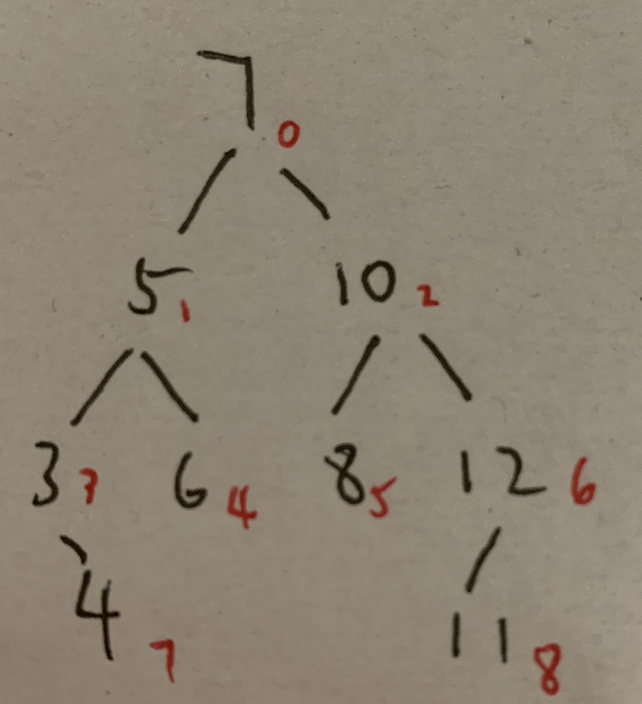 7 0
5 1 10 2
3 3 6 4 8 5 12 6
4 7 11 8